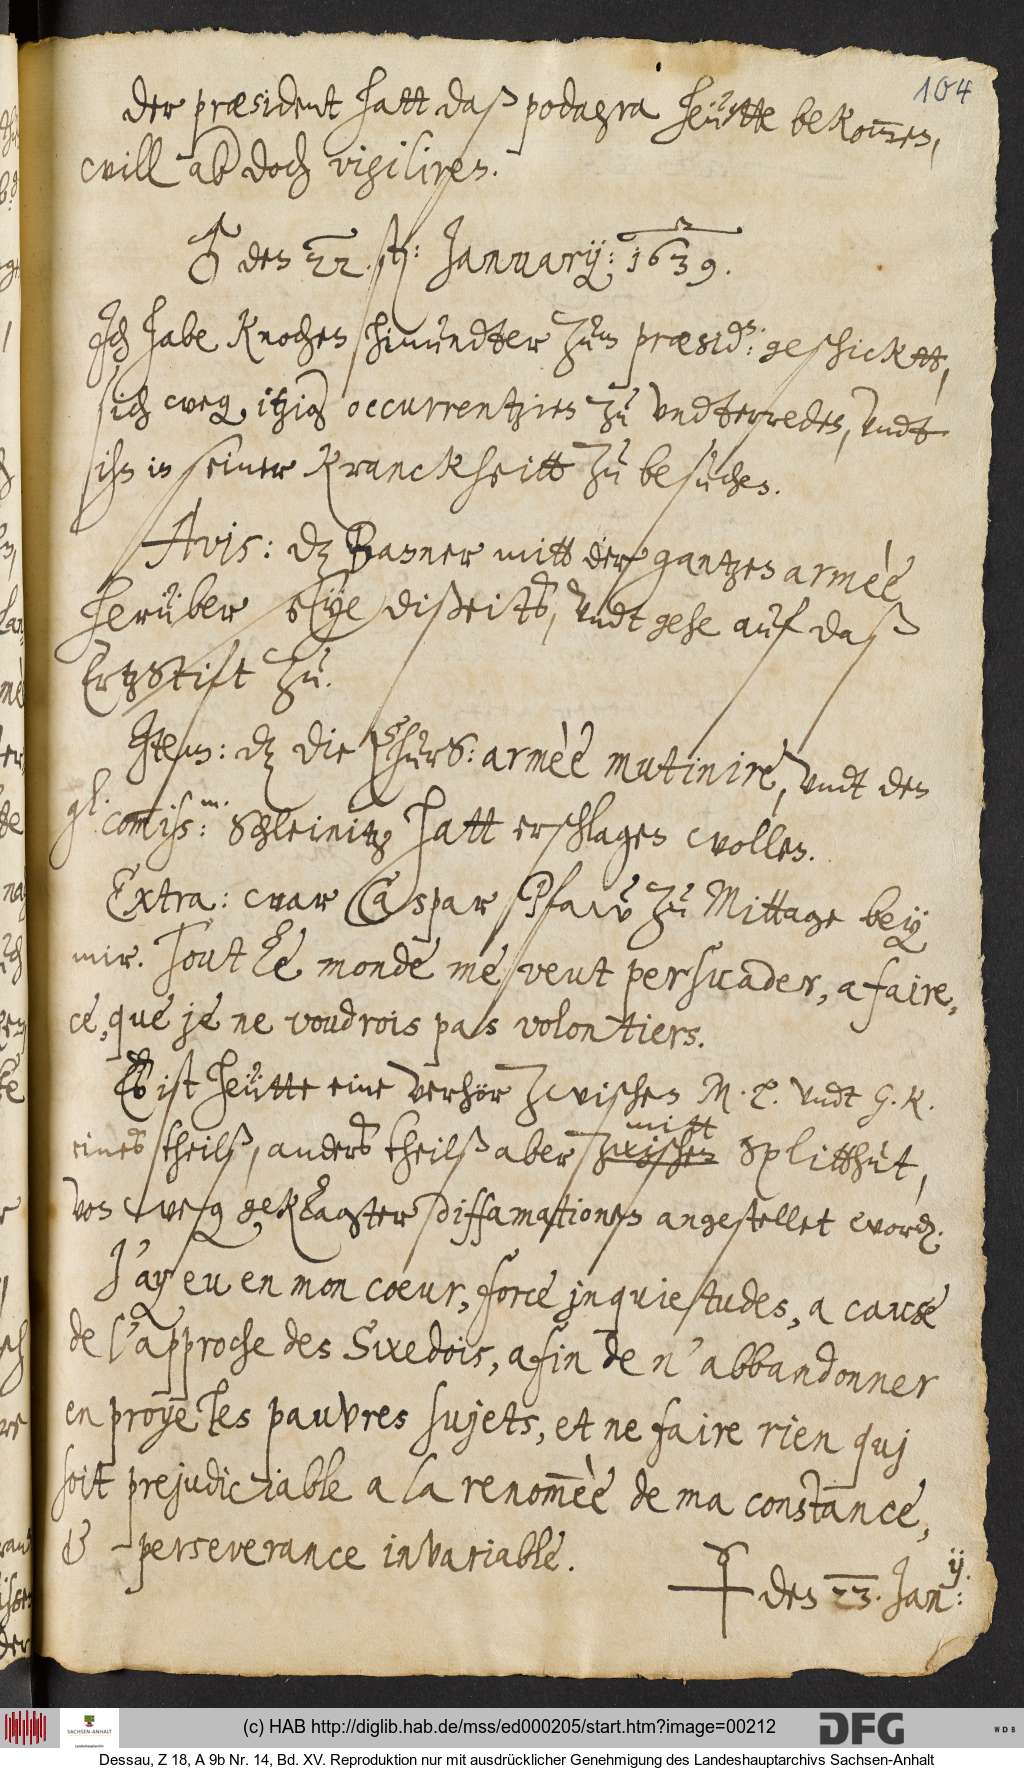 104
der præsident hatt daß podagra heütte bekom̅en,
will ab doch vigiliren.
♂ den 22. st: January: 1639.
Ich habe Knochen hinundter zum præsid: geschicktt,
sich weg. itzig occurrentzien zu undterreden, undt
ihn in seiner Kranckheitt zu besuchen.
Avis: dz Banner mitt der gantzen armèè
herüber seye disseits, undt gehe auf daß
Ertzstift zu.
Item: dz die Churs: armèè mutinire, undt den
gl. comiss: Schleinitz hatt erschlagen wollen.
Extra: war Caspar Pfaw zu Mittage bey
mir. Tout le monde me veut persuader, a faire,
ce, que je ne voudrois pas volontiers.
Es ist heütte eine verhör zwischen M. L. undt G. K.
mitt
eines theilß, anders theilß aber zwischen Splitthut,
von weg geklagter diffamationen angestellet word.
J'ay eu en mon coeur, force inquietudes, a cause
de l'approche des Swedois, afin de n'abbandonner
en proye les pauvres sujets, et ne faire rien quj
soit prejudiciable a la renom̅èè de ma constance,
& perseverance invariable.
☿ den 23. Jan:
(c) HAB http://diglib.hab.de/mss/ed000205/start.htm?image=00212
SACHSEN-ANHALT
DFG
WDB
Dessau, Z 18, A 9b Nr. 14, Bd. XV. Reproduktion nur mit ausdrücklicher Genehmigung des Landeshauptarchivs Sachsen-Anhalt